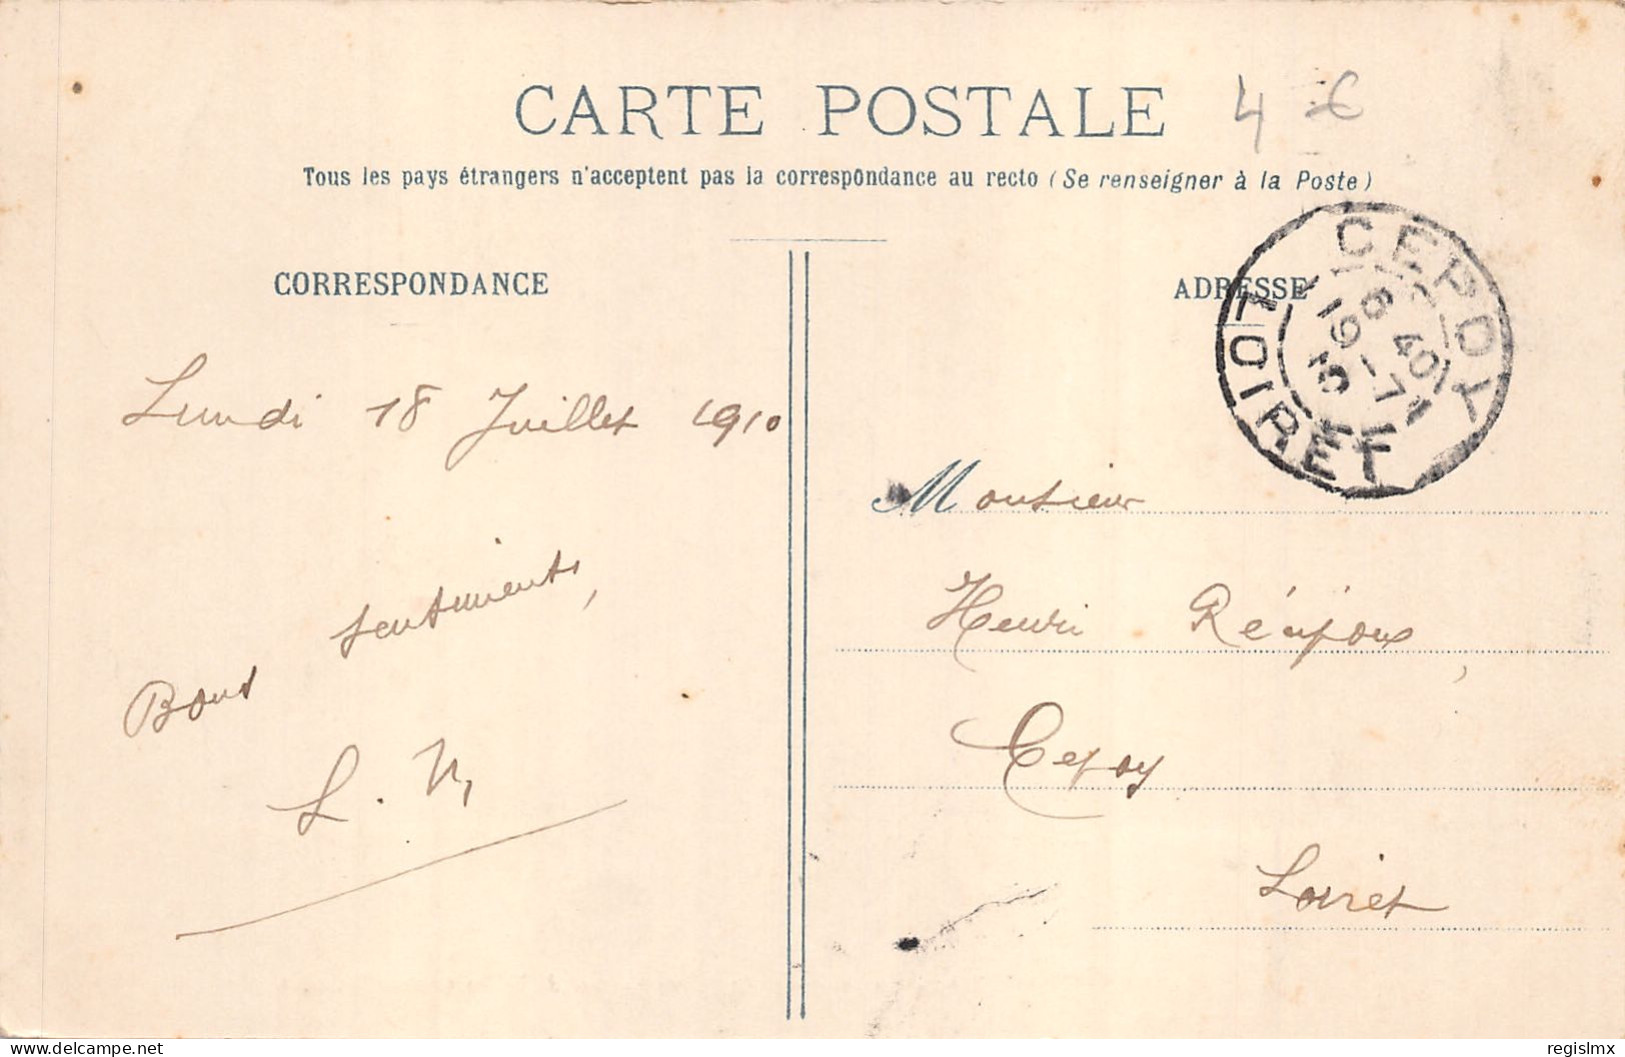 CARTE POSTALE
4 €
Tous les pays étrangers n'acceptent pas la correspondance au recto (Se renseigner à la Poste)
CORRESPONDANCE
ADRESSE
CEPOY
6 40
19 - 7
10
LOIRET
Lundi 18 Juillet 1910
Bons sentiments,
L. N,
Monsieur
Henri
Cepoy
Loiret
delcampe.net
regislmx